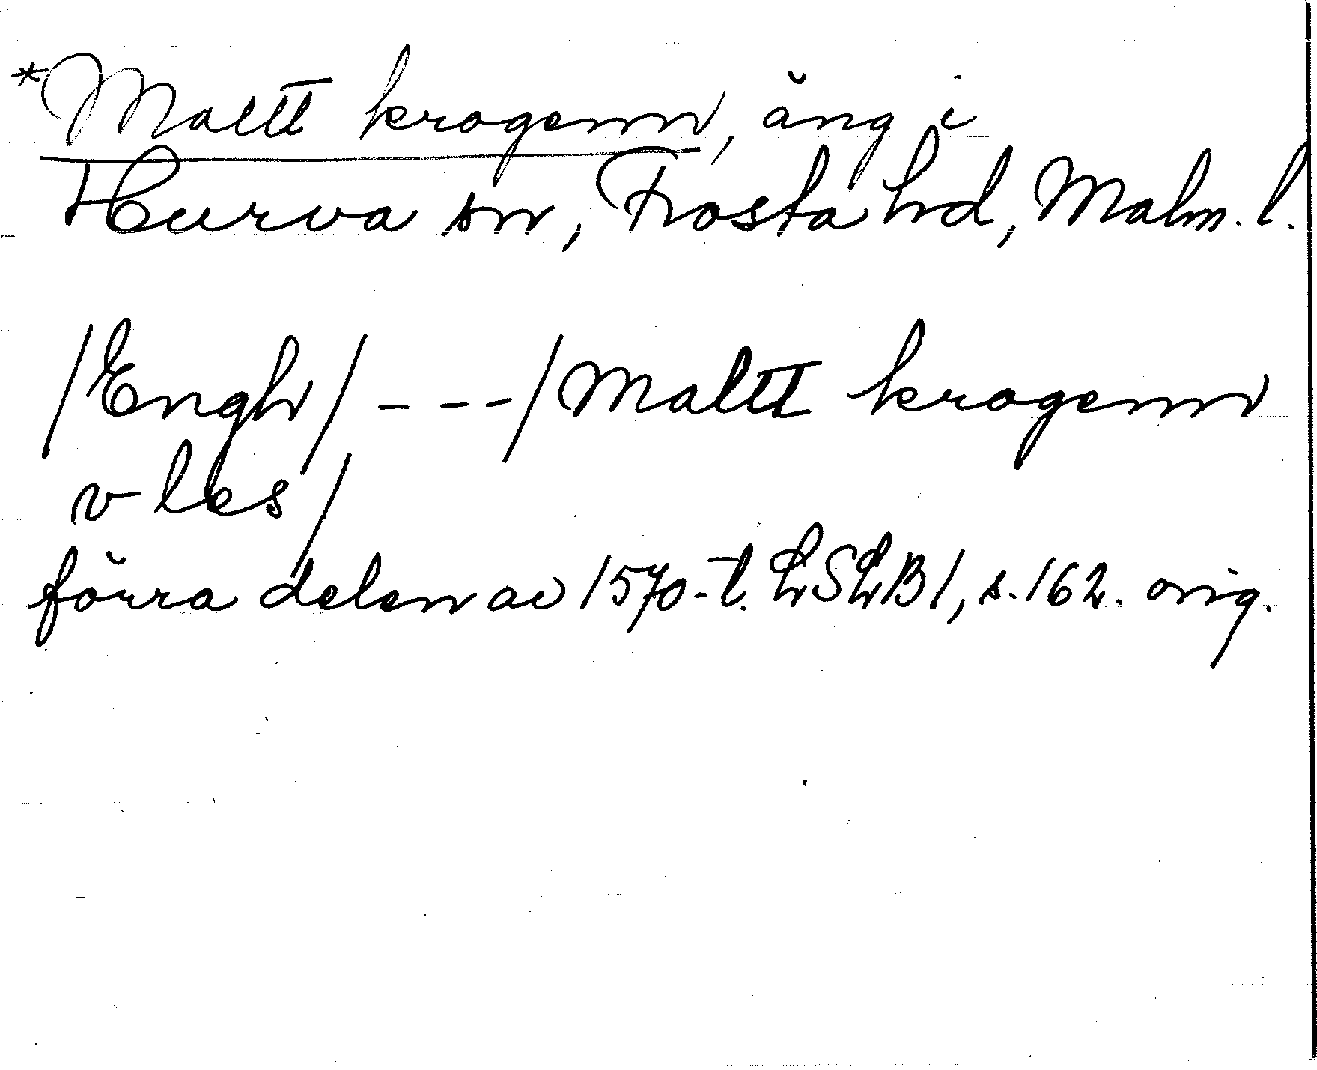 *Maltt krogenn, äng i
Hurva sn, Frosta hd, Malm. l.
/Engh/ - - - / Maltt krogenn
v les/
förra delen av 1570-t. LSLB1, s. 162. orig.